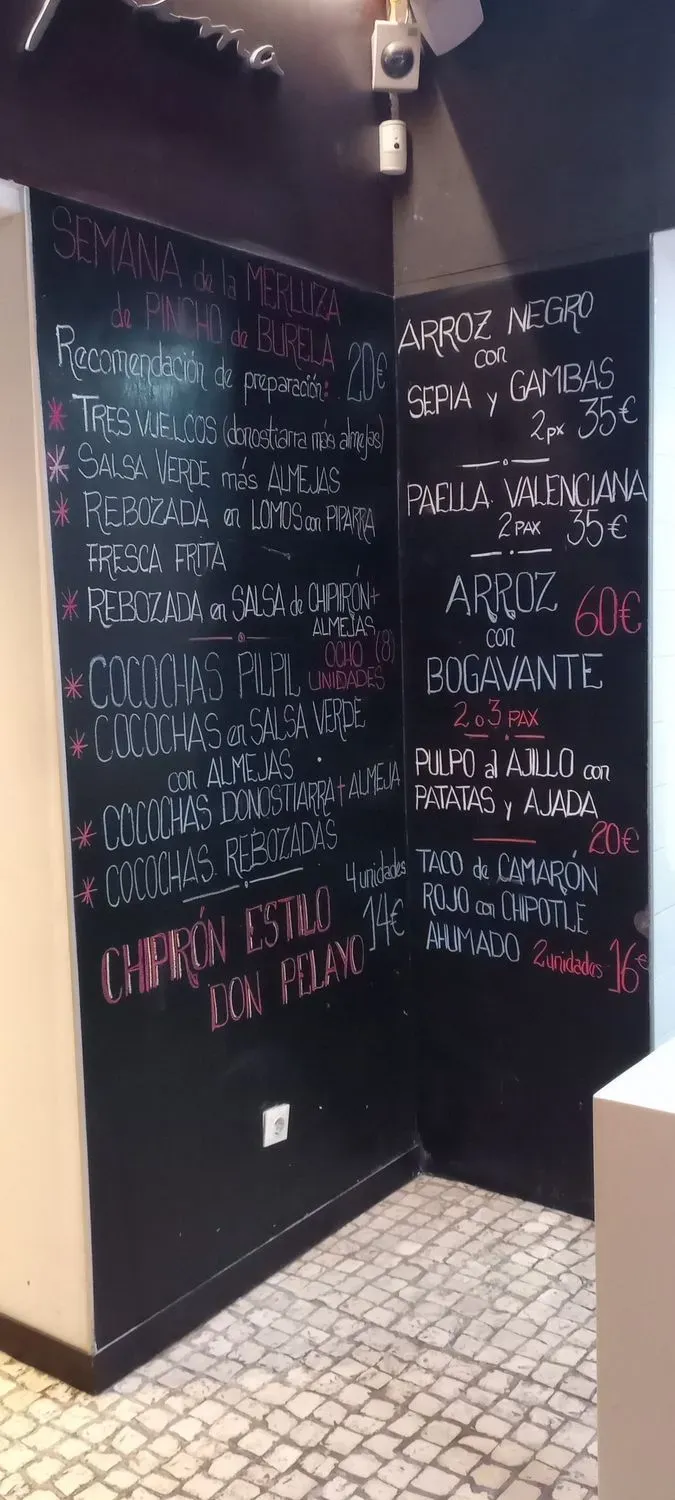 SEMANA de la MERLUZA
de PINCHO de BURELA
Recomendación de preparación: 20€
* TRES VUELCOS (donostiarra más almejas)
* SALSA VERDE más ALMEJAS
* REBOZADA en LOMOS con PIPARRA
FRESCA FRITA
* REBOZADA en SALSA de CHIPIRÓN+
ALMEJAS
* COCOCHAS PILPIL OCHO (8)
UNIDADES
* COCOCHAS en SALSA VERDE
con ALMEJAS
* COCOCHAS DONOSTIARRA + ALMEJA
* COCOCHAS REBOZADAS
4 unidades
CHIPIRÓN ESTILO 14€
DON PELAYO
ARROZ NEGRO
con
SEPIA y GAMBAS
2 px 35€
PAELLA VALENCIANA
2 PAX 35€
ARROZ 60€
con
BOGAVANTE
2 o 3 PAX
PULPO al AJILLO con
PATATAS y AJADA
20€
TACO de CAMARÓN
ROJO con CHIPOTLE
AHUMADO 2 unidades 16€